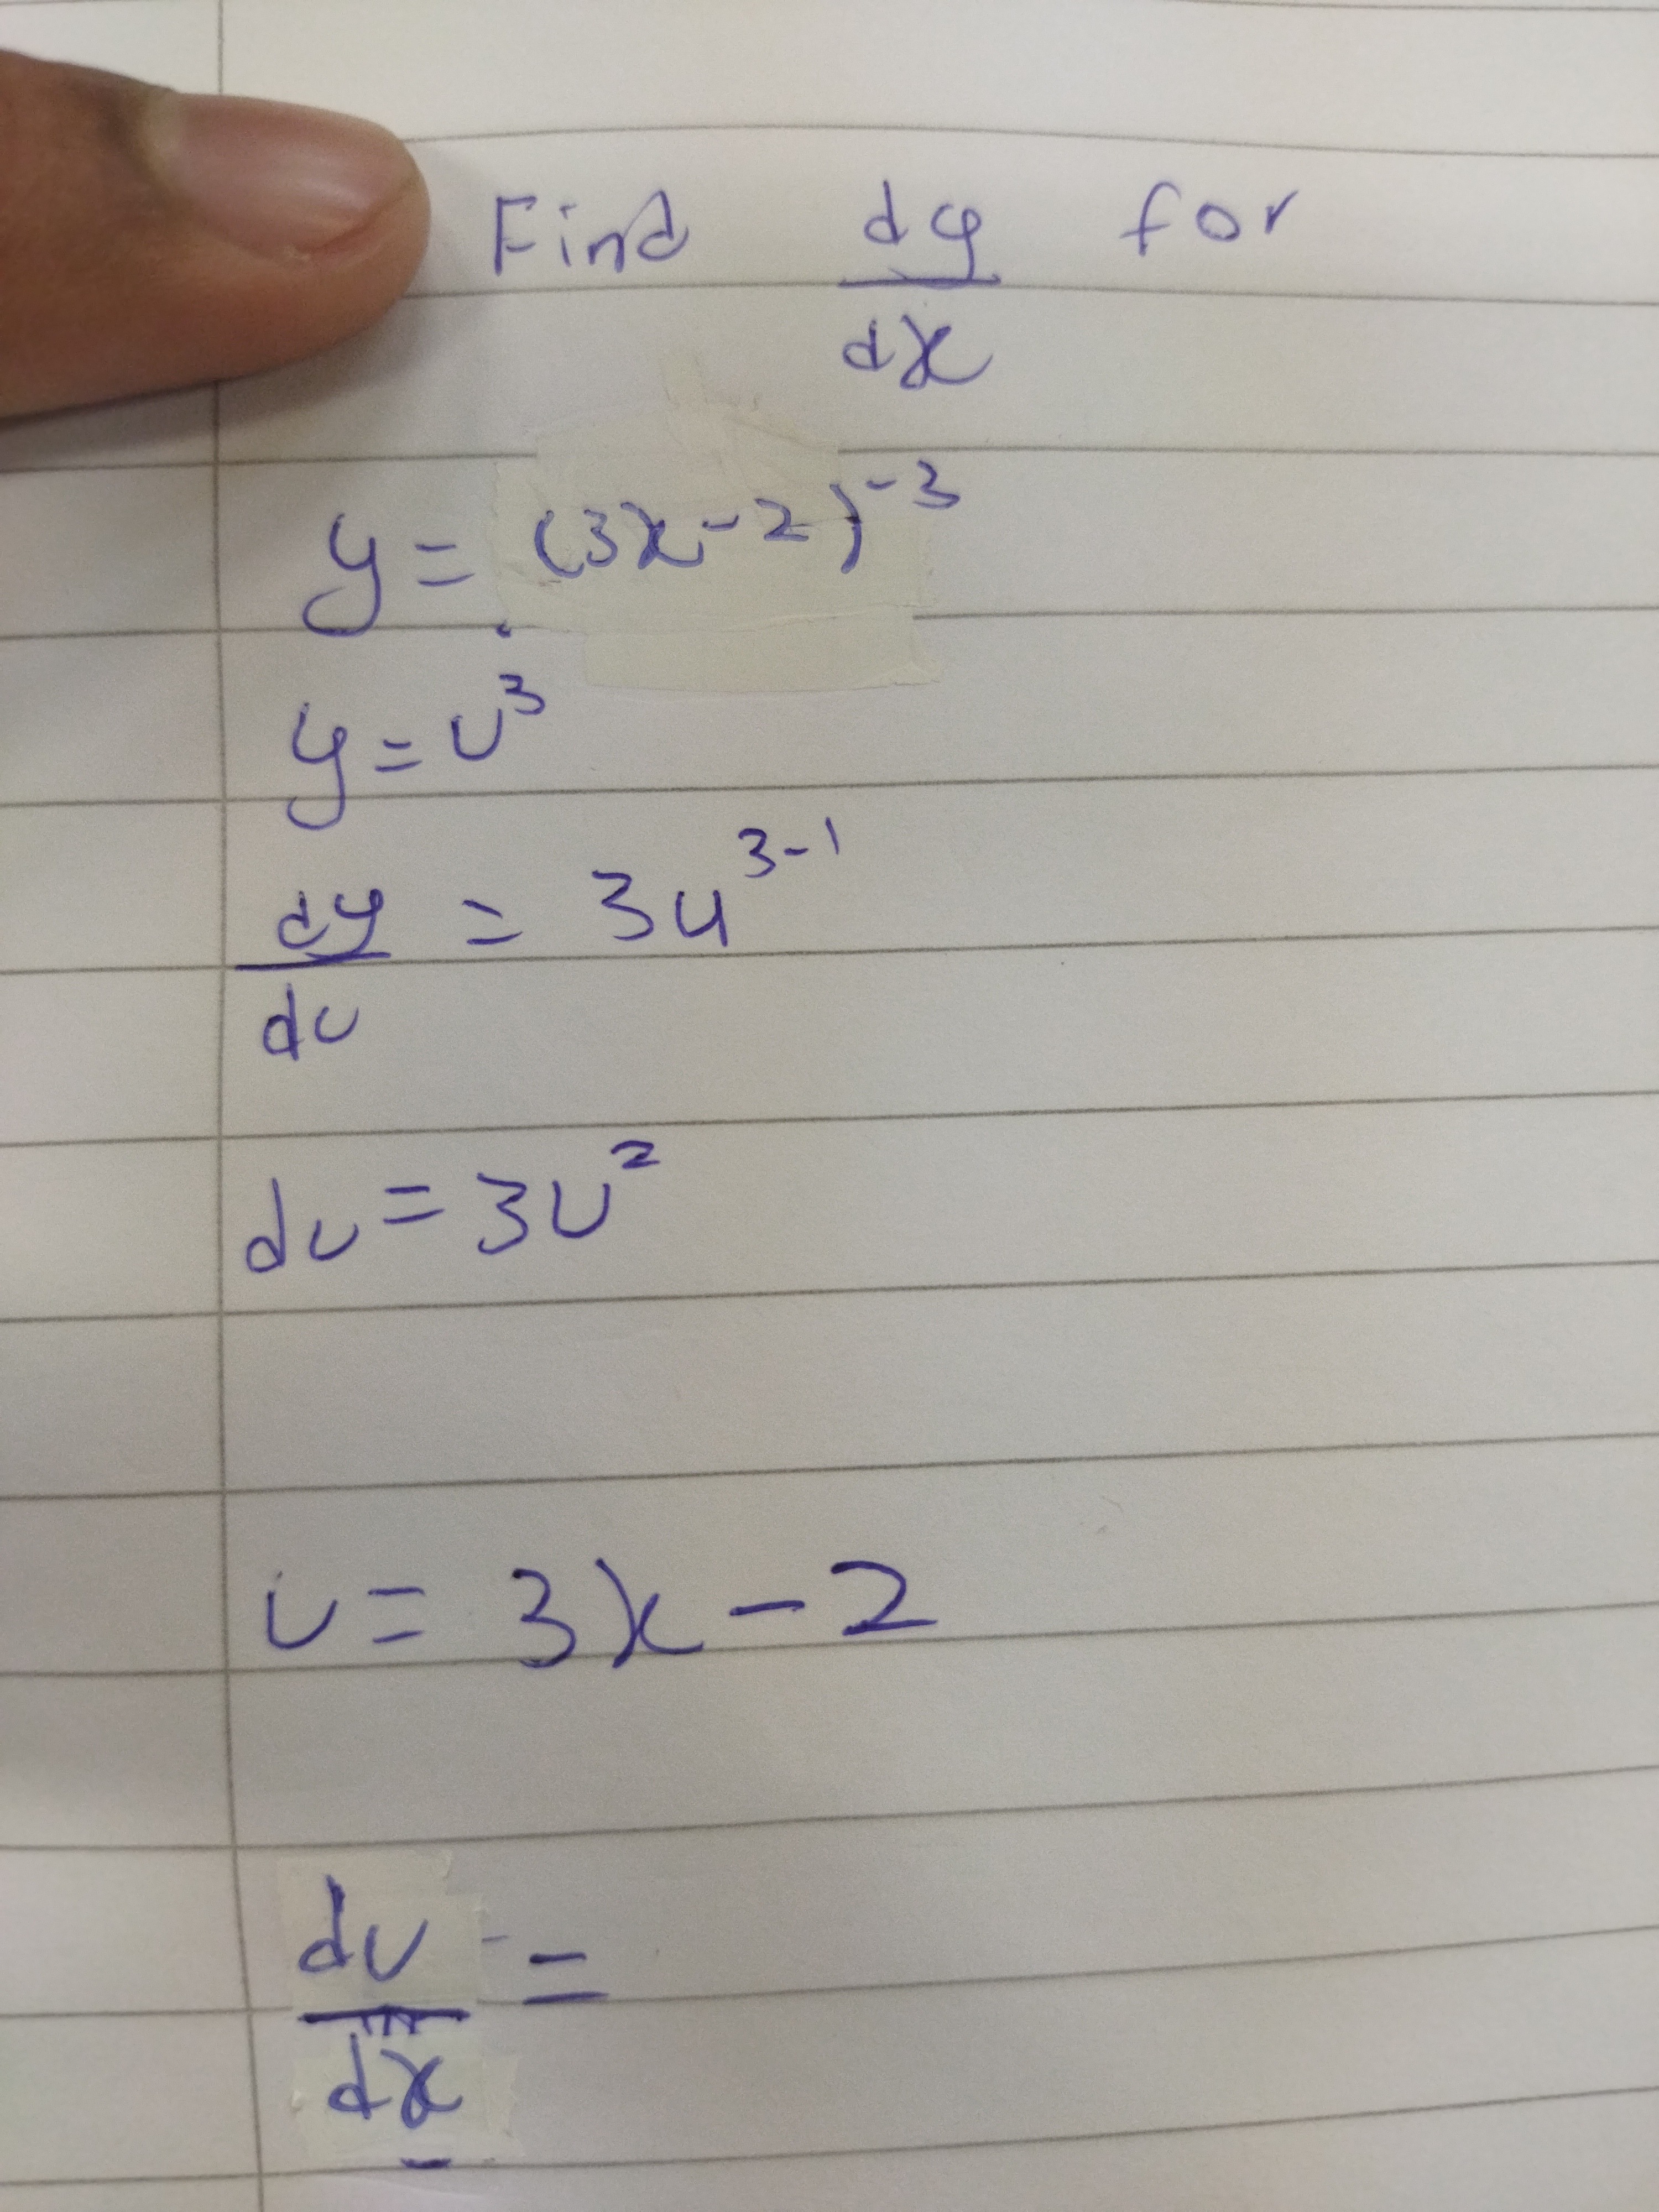 Find dy/dx for
y = (3x-2)^-3
y = u^3
dy/du = 3u^3-1
du = 3u^2
u = 3x - 2
du/dx =